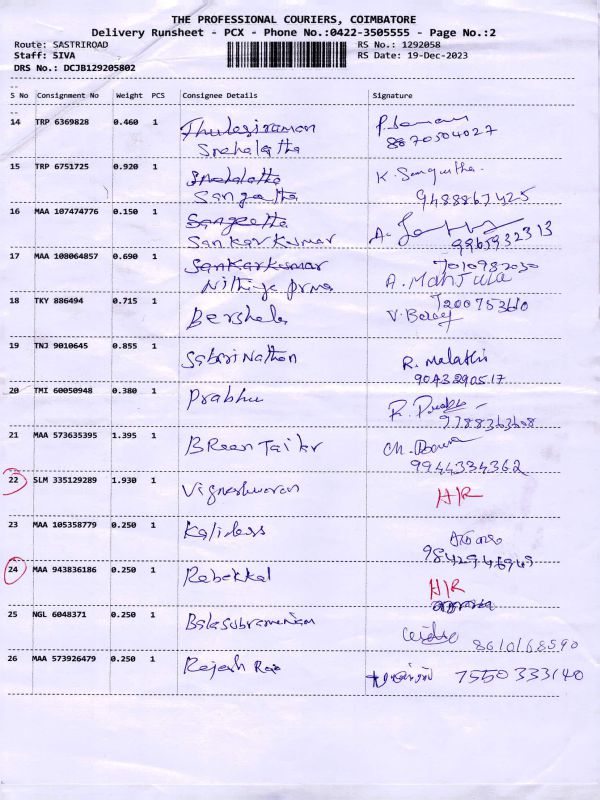 THE PROFESSIONAL COURIERS, COIMBATORE
Delivery Runsheet - PCX - Phone No.:0422-3505555 - Page No.:2
Route: SASTRIROAD RS No.: 1292058
Staff: SIVA RS Date: 19-Dec-2023
DRS No.: DCJB129205802
S No Consignment No Weight PCS Consignee Details Signature
14 TRP 6369828 0.460 1 Thulasiraman
Snehalatha 8870504027
15 TRP 6751725 0.920 1 Snehalatha K. Sangeetha
Sangeetha 9488867425
16 MAA 107474776 0.150 1 Sangeetha
Sankar Kumar 9965932313
17 MAA 108064857 0.690 1 Sankarkumar 7010982030
Nithiya prma A. MANJULA
18 TKY 886494 0.715 1 Bershela
19 TNJ 9010645 0.855 1 Sabari Nathan R. Malathi
9043290517
20 TMI 60050948 0.380 1 Prabhu
9788363608
21 MAA 573635395 1.395 1
9944334362
22 SLM 335129289 1.930 1 Vigneshwaran H/R
23 MAA 105358779 0.250 1 Kalidess
24 MAA 943836186 0.250 1 Rebekkal H/R
25 NGL 6048371 0.250 1 Balasubramaniam
8610168590
26 MAA 573926479 0.250 1 Rajesh Rao 7550333140